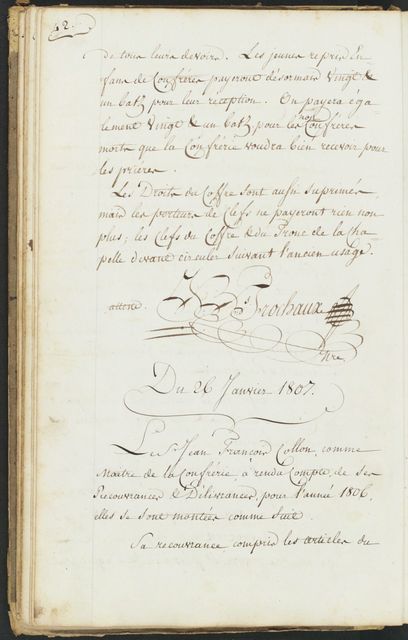 42.
de tous leurs devoirs. Les jeunes repris En-
fans de Confréres payeront désormais vingt &
un batz pour leur reception. On payera éga-
lement vingt & un batz pour les non Confréres
morts que la Confrérie voudra bien recevoir pour
les prieres.
Les Droits du Coffre sont aussi suprimés,
mais les porteurs de Clefs ne payeront rien non
plus; les Clefs du Coffre & du Tronc de la Cha
pelle devant circuler suivant l'ancien usage.
atteste. Frochaux
Du 26 Janvier 1807.
Le Sr Jean François Collon, comme
Maitre de la Confrérie, a rendu Compte de ses
Recouvrances & Délivrances pour l'année 1806,
elles se sont montées comme suit.
Sa recouvrance compris les articles du